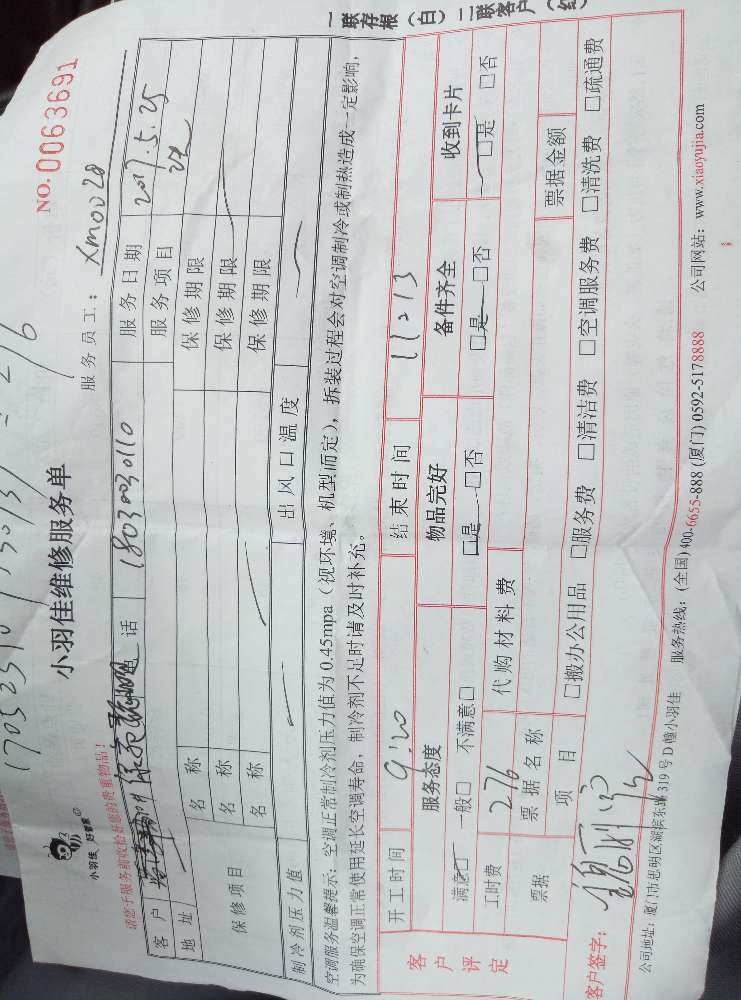 NO.0063691
小羽佳 好管家
小羽佳维修服务单
服务员工：XM0028
请您于服务前收检好您的贵重物品！
客户 电话 18030030110 服务日期 2017.5.25
地址 服务项目
保修项目 名称 保修期限
名称 保修期限
名称 保修期限
制冷剂压力值 出风口温度
空调服务温馨提示：空调正常制冷剂压力值为0.45mpa（视环境、机型而定），拆装过程会对空调制冷或制热造成一定影响，
为确保空调正常使用延长空调寿命，制冷剂不足时请及时补充。
一联存根（白）二联客户（红
客户评定 开工时间 9:20 结束时间 11:13
服务态度 物品完好 备件齐全 收到卡片
满意□ 一般□ 不满意□ □是 □否 □是 □否 □是 □否
工时费 276 代购材料费
票据 票据名称 票据金额
项目 □搬办公用品 □服务费 □清洁费 □空调服务费 □清洗费 □疏通费
客户签字：
公司地址：厦门市思明区湖滨东路319号D幢小羽佳 服务热线：(全国)400-6655-888 (厦门) 0592-5178888 公司网站：www.xiaoyujia.com